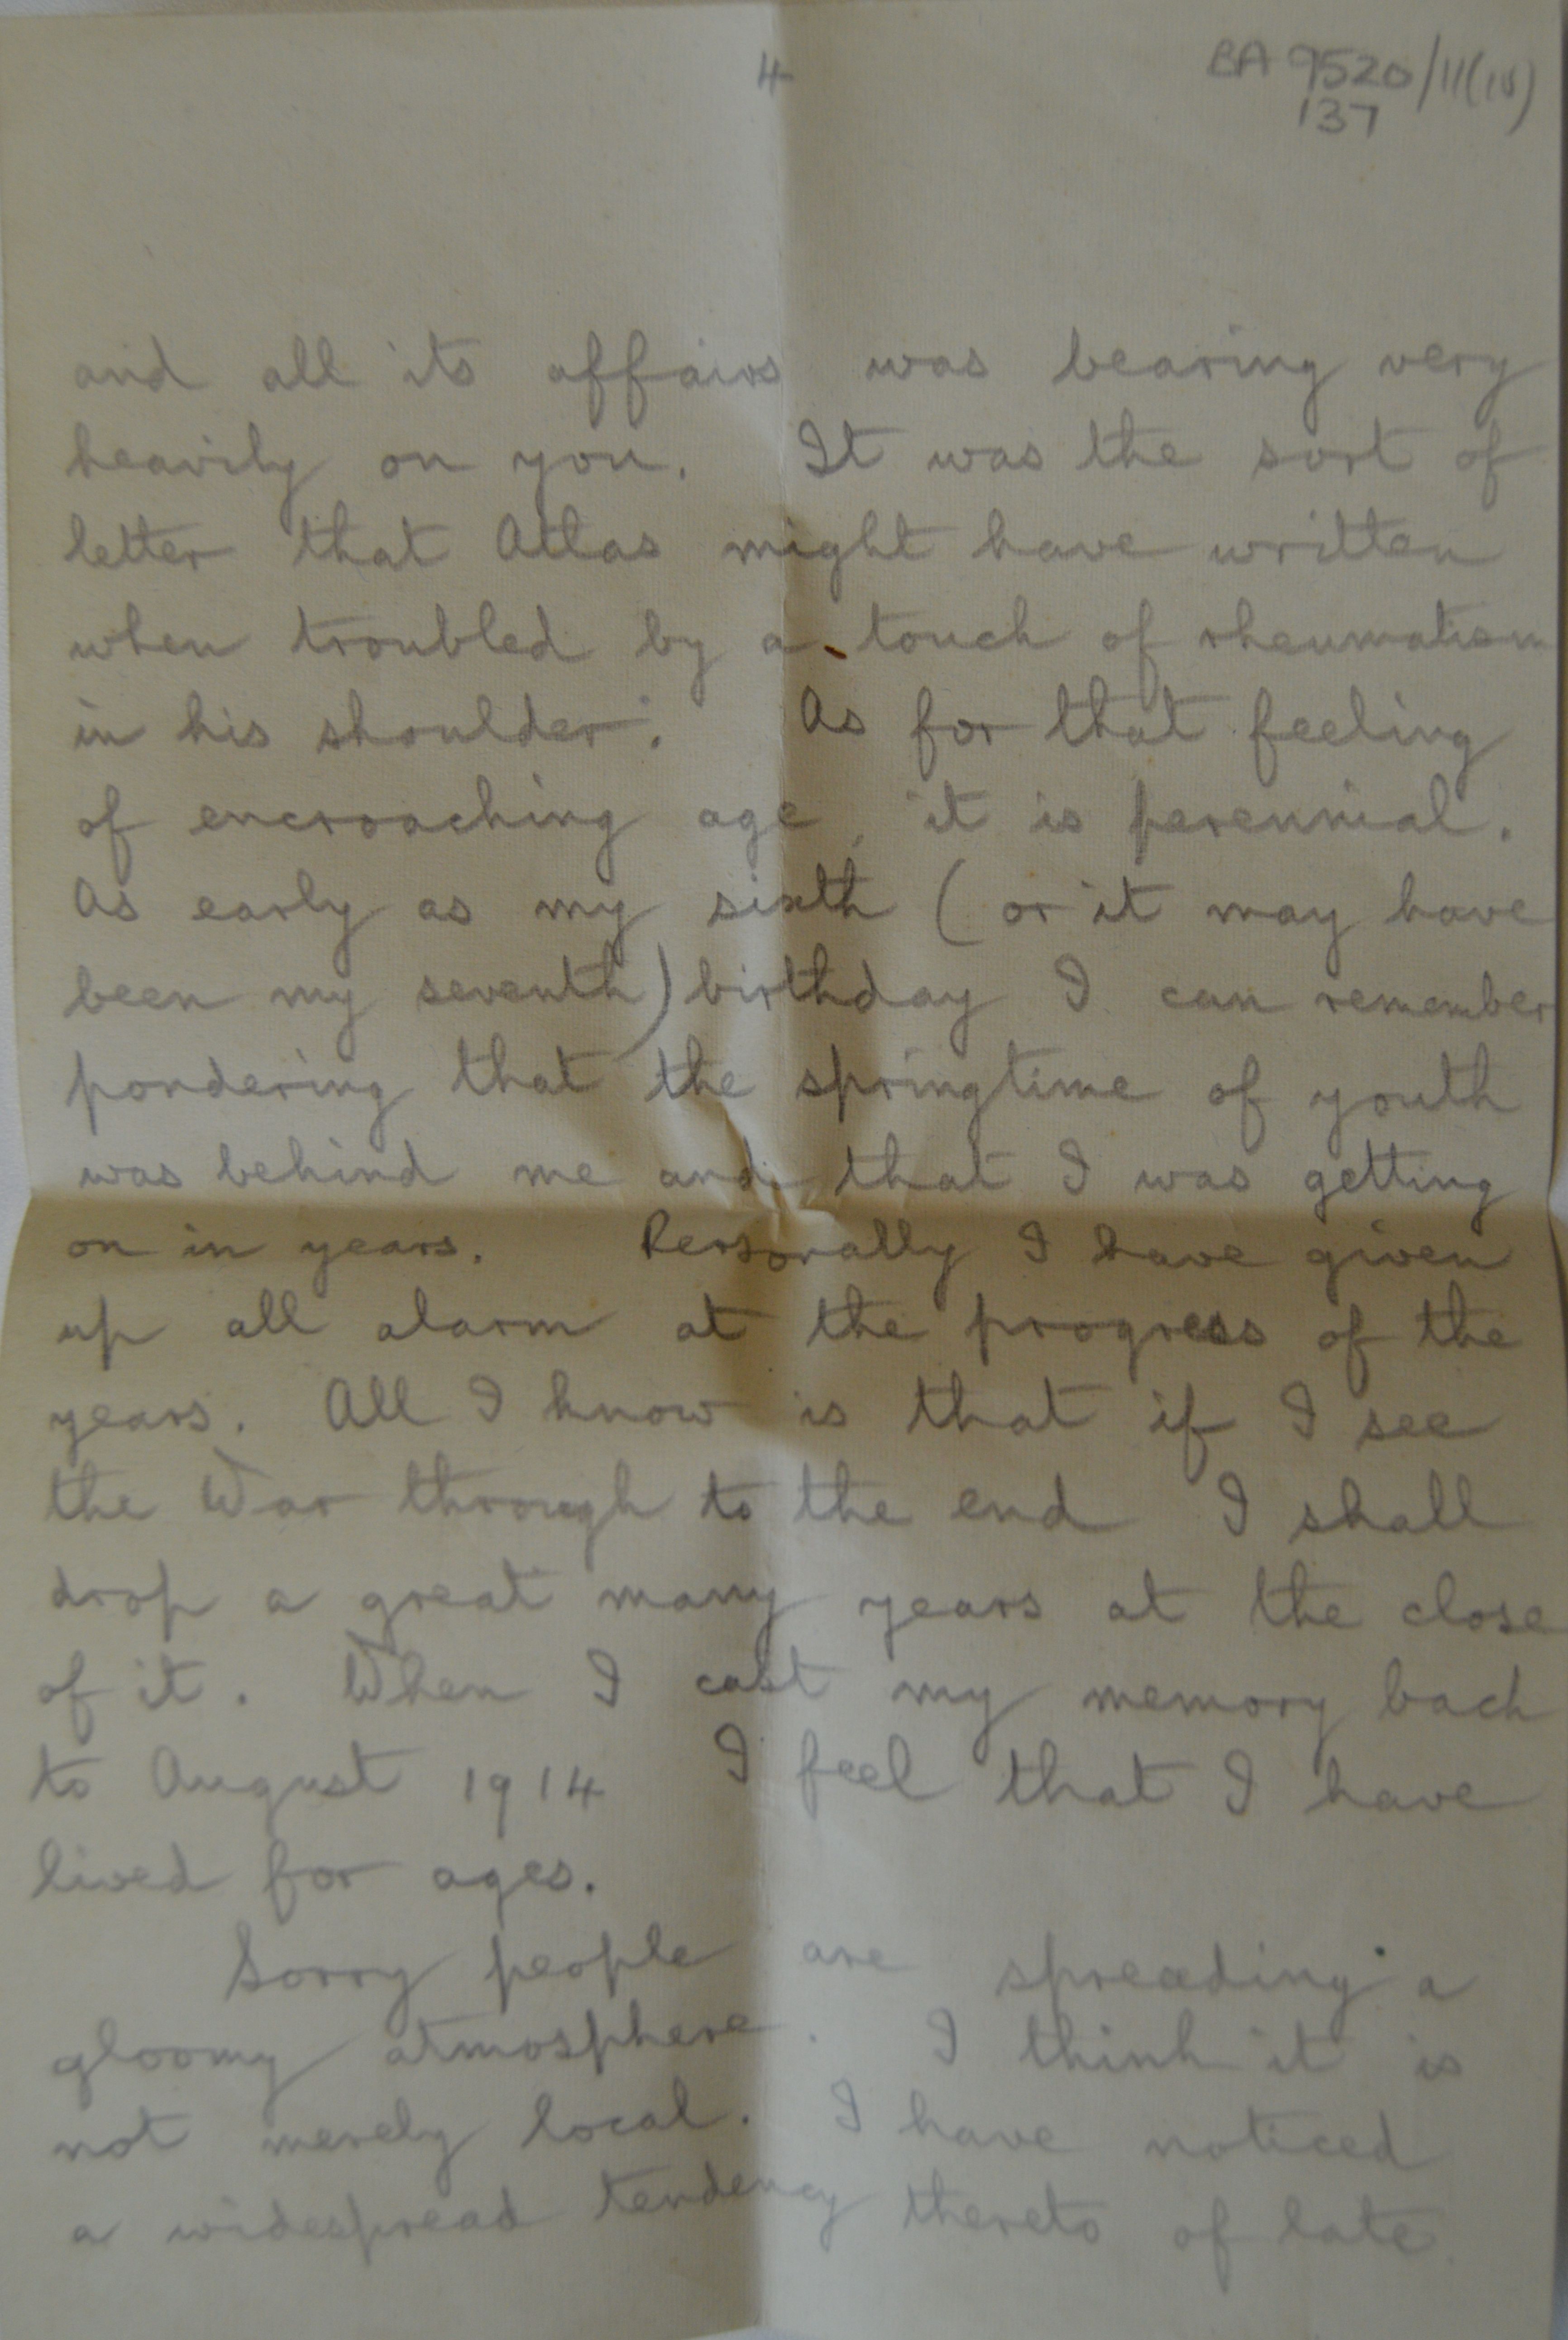 4
BA 9520/11(10)
137
and all its affairs was bearing very
heavily on you. It was the sort of
letter that Atlas might have written
when troubled by a touch of rheumatism
in his shoulder. As for that feeling
of encroaching age, it is perennial.
As early as my sixth (or it may have
been my seventh) birthday I can remember
pondering that the springtime of youth
was behind me and that I was getting
on in years. Personally I have given
up all alarm at the progress of the
years. All I know is that if I see
the War through to the end I shall
drop a great many years at the close
of it. When I cast my memory back
to August 1914 I feel that I have
lived for ages.
Sorry people are spreading a
gloomy atmosphere. I think it is
not merely local. I have noticed
a widespread tendency thereto of late.